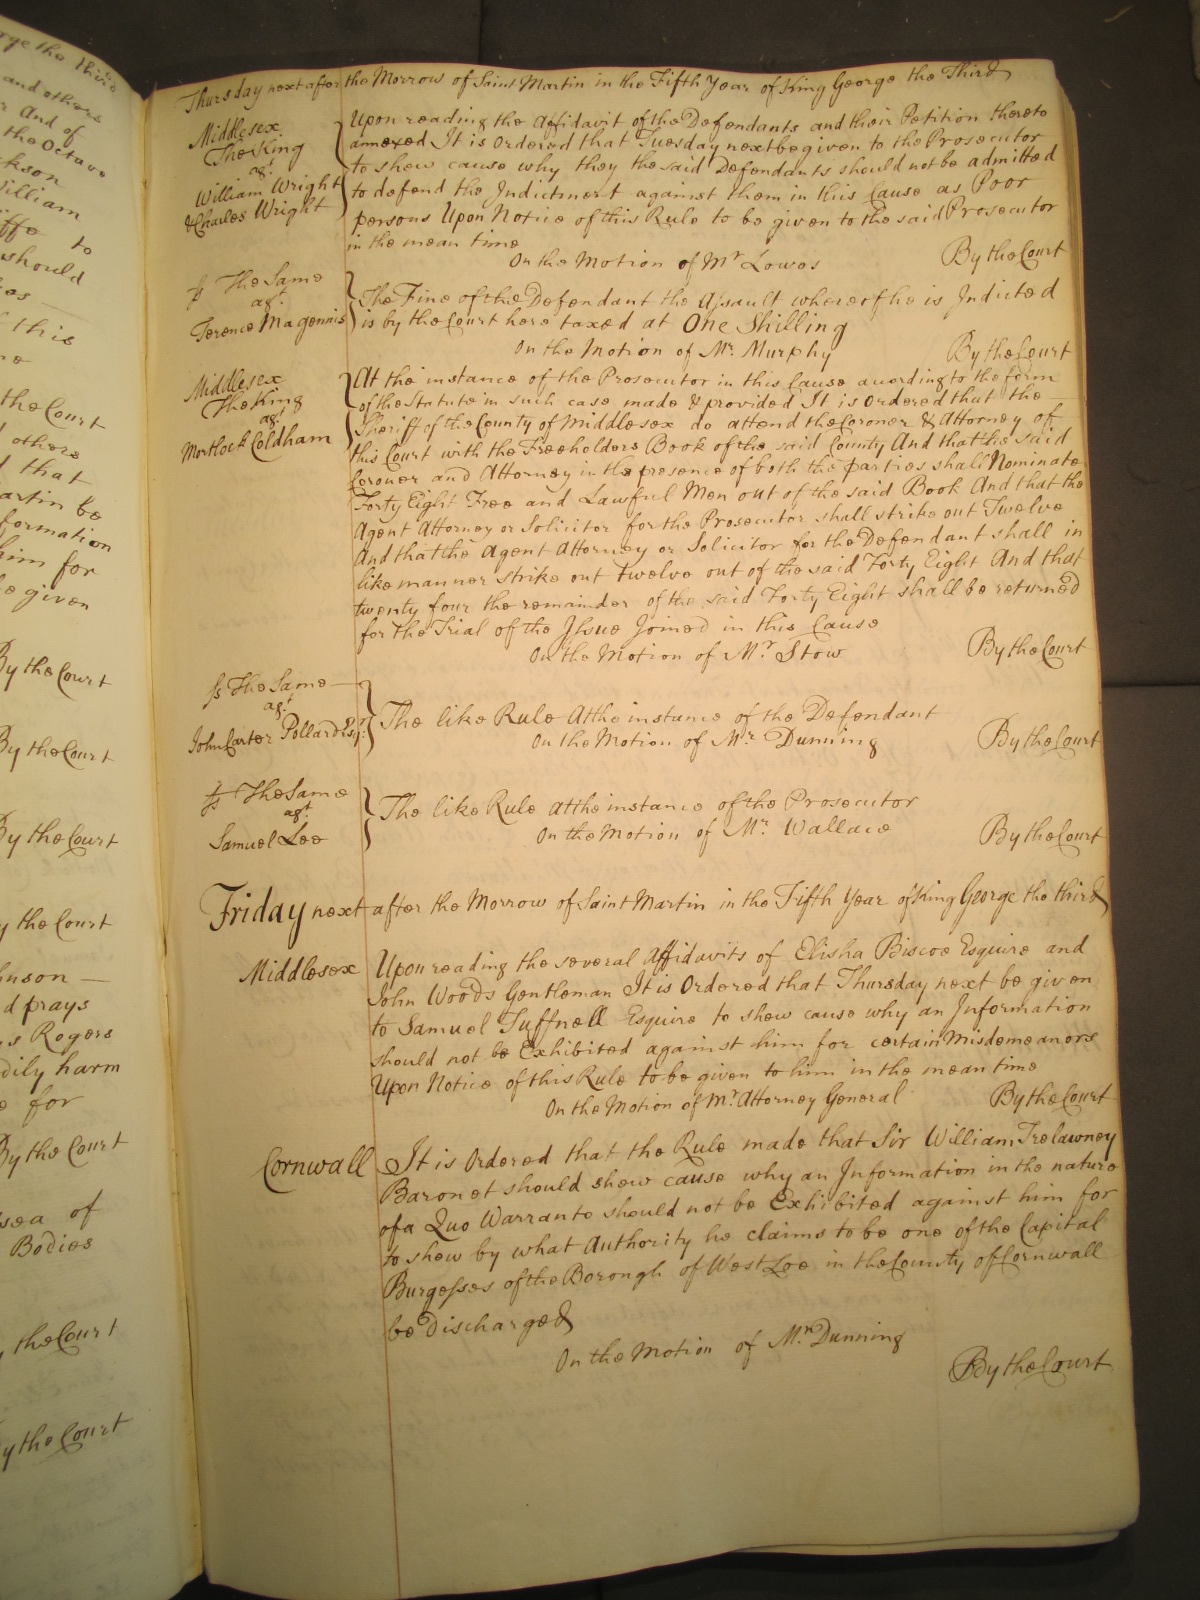 rge the third
and others
r And of
the Octave
ckson
William
iffe to
should
this
the Court
others
d that
artin be
formation
him for
be given
By the Court
By the Court
By the Court
y the Court
hnson
d prays
s Rogers
dily harm
e for
By the Court
sea of
Bodies
the Court
y the Court
Thursday next after the Morrow of Saint Martin in the Fifth Year of King George the Third
Middlesex
The King
agt.
William Wright
& Charles Wright
Upon reading the Affidavit of the Defendants and their Petition thereto
annexed It is Ordered that Tuesday next be given to the Prosecutor
to shew cause why they the said Defendants should not be admitted
to defend the Indictment against them in this Cause as Poor
persons Upon Notice of this Rule to be given to the said Prosecutor
in the mean time
On the Motion of Mr Lowes
By the Court
fs The Same
agt.
Terence Magennis
The Fine of the Defendant the Assault whereof he is Indicted
is by the Court here taxed at One Shilling
On the Motion of Mr. Murphy
By the Court
Middlesex
The King
agt.
Mortlock Coldham
At the instance of the Prosecutor in this Cause according to the form
of the Statute in such case made & provided It is Ordered that the
Sheriff of the County of Middlesex do attend the Coroner & Attorney of
this Court with the Freeholders Book of the said County And that the said
Coroner and Attorney in the presence of both the parties shall Nominate
Forty Eight Free and Lawful Men out of the said Book And that the
Agent Attorney or Solicitor for the Prosecutor shall strike out Twelve
And that the Agent Attorney or Solicitor for the Defendant shall in
like manner strike out twelve out of the said Forty Eight And that
twenty four the remainder of the said Forty Eight shall be returned
for the Trial of the Issue Joined in this Cause
On the Motion of Mr. Stow
By the Court
fs The Same
agt.
John Carter Pollard Esqr.
The like Rule At the instance of the Defendant
On the Motion of Mr. Dunning
By the Court
fs The Same
agt.
Samuel Lee
The like Rule at the instance of the Prosecutor
On the Motion of Mr. Wallace
By the Court
Friday next after the Morrow of Saint Martin in the Fifth Year of King George the third
Middlesex
Upon reading the several Affidavits of Elisha Biscoe Esquire and
John Woods Gentleman It is Ordered that Thursday next be given
to Samuel Tuffnell Esquire to shew cause why an Information
should not be Exhibited against him for certain Misdemeanors
Upon Notice of this Rule to be given to him in the mean time
On the Motion of Mr. Attorney General
By the Court
Cornwall
It is Ordered that the Rule made that Sir William Trelawney
Baronet should shew cause why an Information in the nature
of a Quo Warranto should not be Exhibited against him for
to shew by what Authority he claims to be one of the Capital
Burgesses of the Borough of West Loe in the County of Cornwall
be Discharged
On the Motion of Mr. Dunning
By the Court